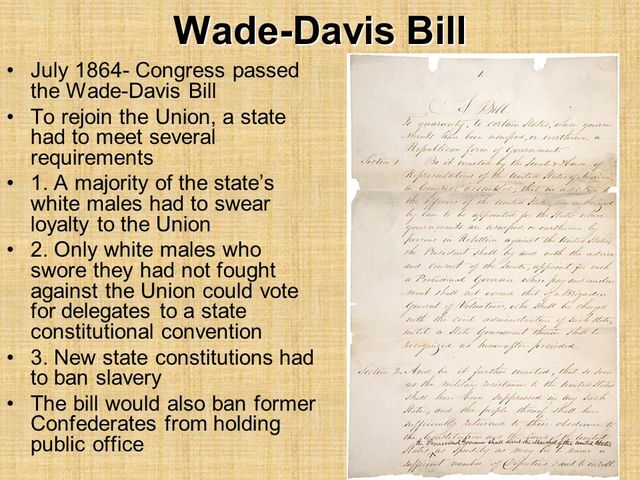 Wade-Davis Bill
• July 1864- Congress passed
the Wade-Davis Bill
• To rejoin the Union, a state
had to meet several
requirements
• 1. A majority of the state's
white males had to swear
loyalty to the Union
• 2. Only white males who
swore they had not fought
against the Union could vote
for delegates to a state
constitutional convention
• 3. New state constitutions had
to ban slavery
• The bill would also ban former
Confederates from holding
public office
A Bill
To guaranty, to certain States, whose govern-
ments have been usurped, or overthrown, a
Republican form of Government.
Section 1. Be it enacted by the Senate & House of
Representatives of the United States of America
in Congress assembled, that in
by law to be appointed for the States whose
governments are usurped or overthrown by
persons in Rebellion against the United States
the President shall by and with the advice
and consent of the Senate, appoint for each
a Provisional Governor whose pay and emolu-
ment shall not exceed that of a Brigadier
General of Volunteers, who shall be charged
with the civil administration of such State,
until a State Government therein shall be
recognized as hereinafter provided.
Section 2. And be it further enacted, that so soon
as the military resistance to the United States
shall have been suppressed in any such
State, and the people thereof shall have
sufficiently returned to their obedience to
sufficient number of Deputies, and to enroll